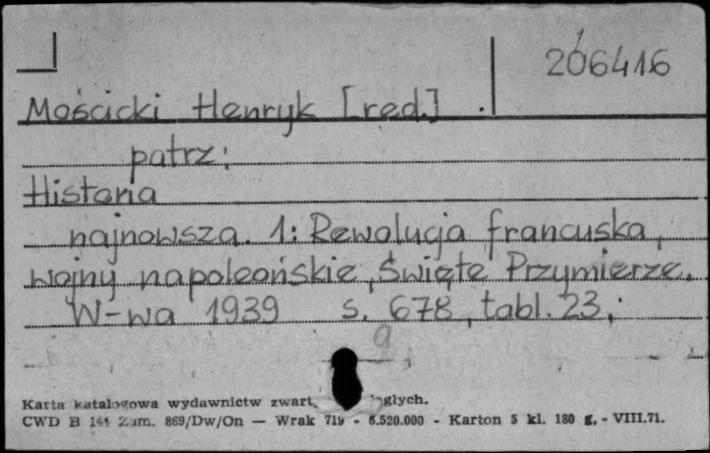 206416
Mościcki Henryk [red.]
patrz:
Historia
najnowsza. 1: Rewolucja francuska,
wojny napoleońskie, Święte Przymierze.
W-wa 1939 s. 678, tabl. 23,
9
Karta katalogowa wydawnictw zwart
CWD B 144 Zam. 869/Dw/On — Wrak 719 - 6.520.000 - Karton 5 kl. 180 g. - VIII.71.